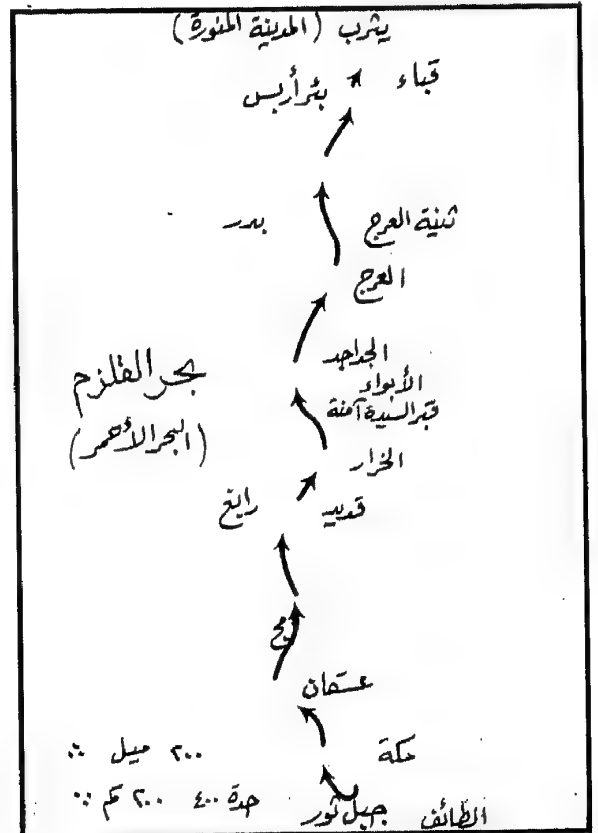 يثرب (المدينة المنورة)
قباء
بئر أريس
ثنية العرج
بدر
العرج
الجداجد
الأبواء
قبر السيدة آمنة
بحر القلزم
(البحر الأحمر)
الخرار
قديد
رابغ
مج
عسفان
مكة
٢٠٠ ميل
الطائف
جبل ثور
جدة ٤٠٠ ٢٠٠ كم